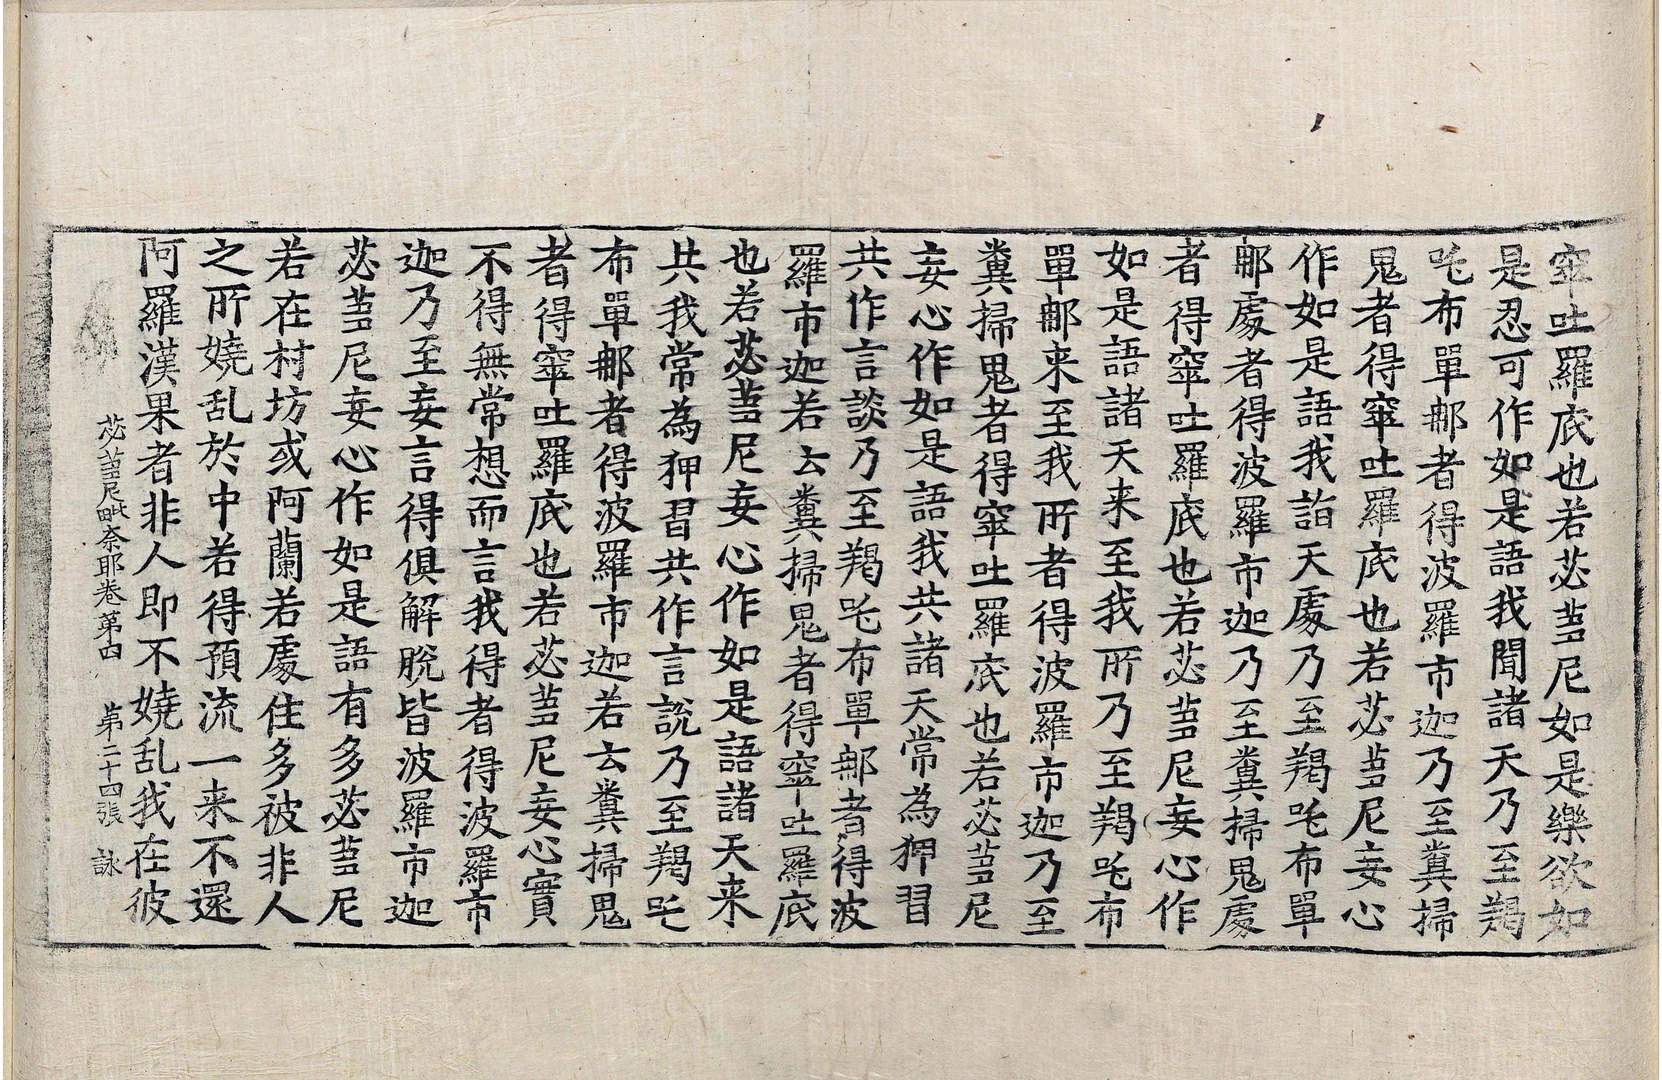 窣吐羅底也若苾芻尼如是樂欲如
是忍可作如是語我聞諸天乃至羯
吒布單那者得波羅市迦乃至糞掃
鬼者得窣吐羅底也若苾芻尼妄心
作如是語我詣天處乃至羯吒布單
那處者得波羅市迦乃至糞掃鬼處
者得窣吐羅底也若苾芻尼妄心作
如是語諸天来至我所乃至羯吒布
單那来至我所者得波羅市迦乃至
糞掃鬼者得窣吐羅底也若苾芻尼
妄心作如是語我共諸天常為狎習
共作言談乃至羯吒布單那者得波
羅市迦若云糞掃鬼者得窣吐羅底
也若苾芻尼妄心作如是語諸天来
共我常為狎習共作言說乃至羯吒
布單那者得波羅市迦若云糞掃鬼
者得窣吐羅底也若苾芻尼妄心實
不得無常想而言我得者得波羅市
迦乃至妄言得俱解脫皆波羅市迦
苾芻尼妄心作如是語有多苾芻尼
若在村坊或阿蘭若處住多被非人
之所嬈乱於中若得預流一来不還
阿羅漢果者非人即不嬈乱我在彼
苾芻尼毗奈耶卷第四 第二十四張 詠